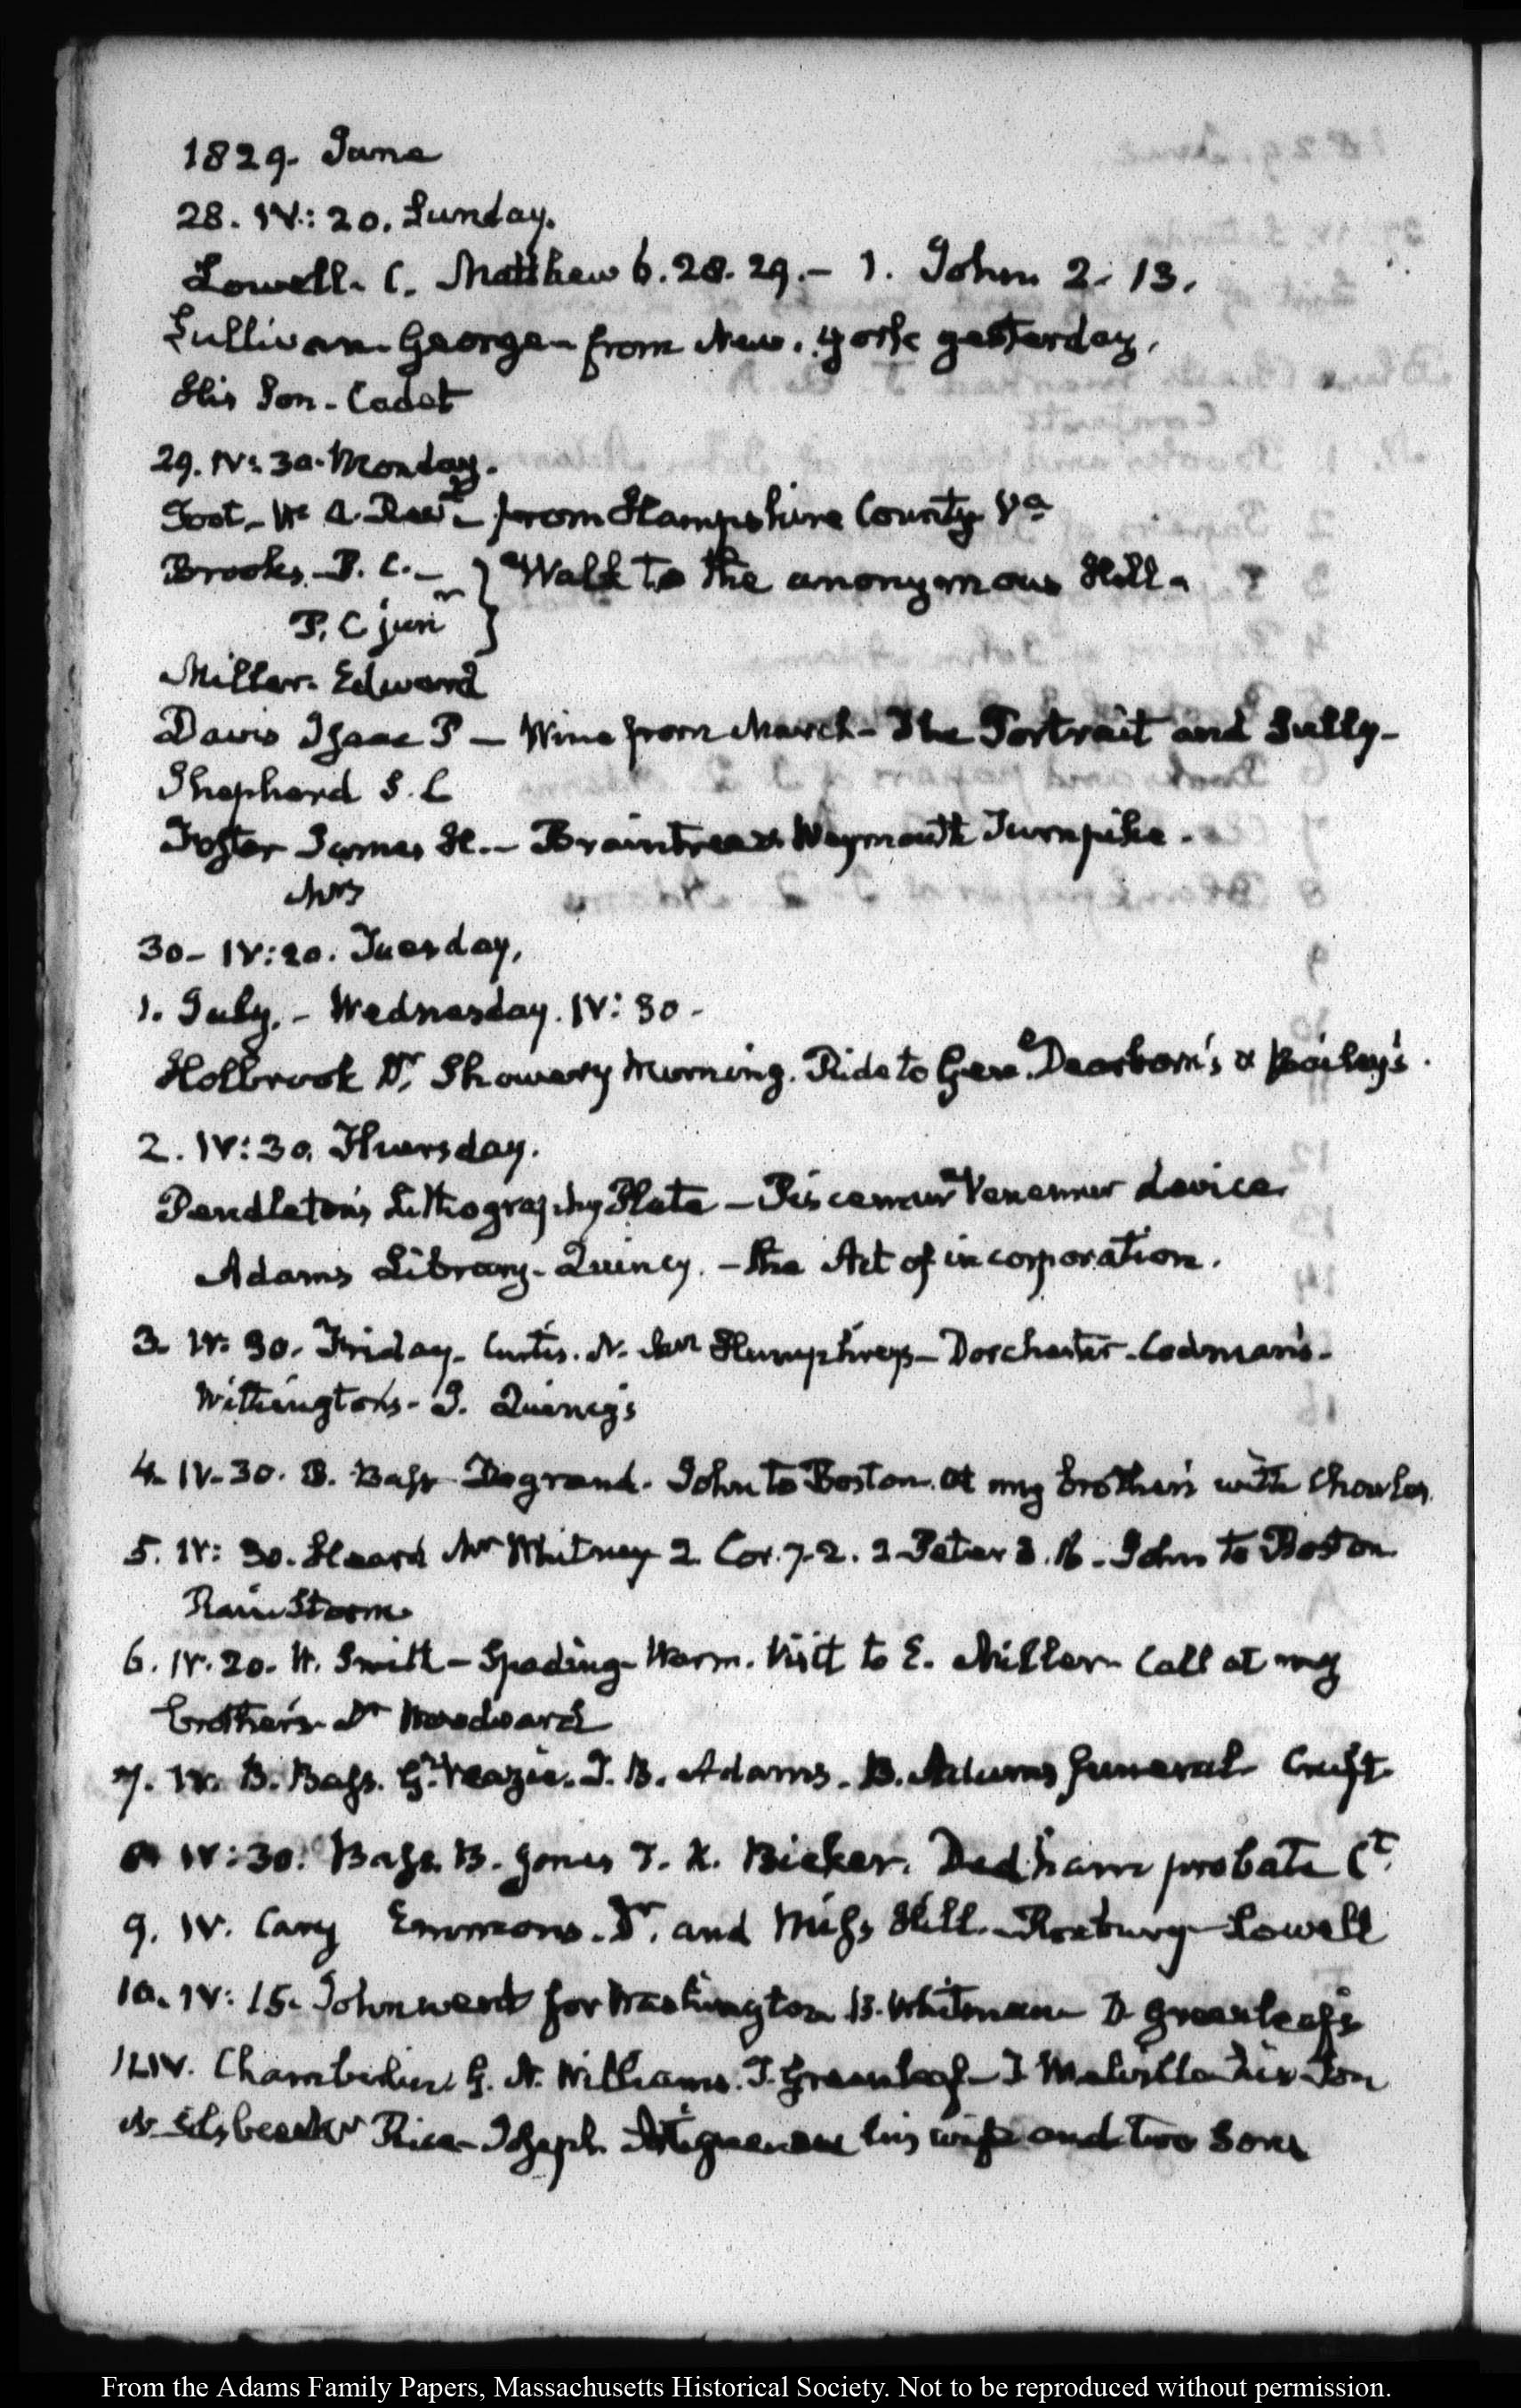 1829. June
28. IV: 20. Sunday.
Lowell. C. Matthew 6. 28. 29. – 1. John 2. 13.
Sullivan. George – from New. York yesterday.
His Son – Cadet
29. IV: 30. Monday.
Foot – Wm. H. Revd. – from Hampshire County Va
Brooks. P. C. – } Walk to the anonymous Hill –
P. C junr }
Miller. Edward
Davis Isaac P – Wine from March – The Portrait and Sully –
Shephard S. C
Foster James H. – Braintree & Weymouth Turnpike.
Mrs
30 – IV: 20. Tuesday.
1. July. – Wednesday. IV: 30 –
Holbrook Dr. Showery Morning. Ride to Genl. Dearborn's & Bailey's.
2. IV: 30. Thursday.
Pendleton's Lithography Plate – Piscemur Venemur device
Adams Library – Quincy. – The Act of incorporation.
3. IV: 30. Friday – Curtis. N. Humphreys – Dorchester – Codman's –
Withington's – J. Quincy's
4. IV. 30. B. Bass Degrand. John to Boston. At my brother's with Charles
5. IV: 30. Heard Mr Whitney 2. Cor. 7. 2. 2 Peter 3. John to Boston
Rain Storm
6. IV. 20. W. Smith – Spading – Warm. Visit to E. Miller – Call at my
brother's Dr Woodward
7. IV. B. Bass. G. Veazie. T. B. Adams. B. Adams funeral Cruft
8 IV: 30. Bass. B. Jones T. K. Bicker. Dedham probate Ct.
9. IV. Cary Emmons. Dr. and Miss Hill. – Roxbury – Lowell
10. IV: 15. John went for Washington B. Whitman D Greenleaf's
11. IV. G. N. Williams. T. Greenleaf – T Melville his Son
Rice – Joseph his wife and two Sons
From the Adams Family Papers, Massachusetts Historical Society. Not to be reproduced without permission.